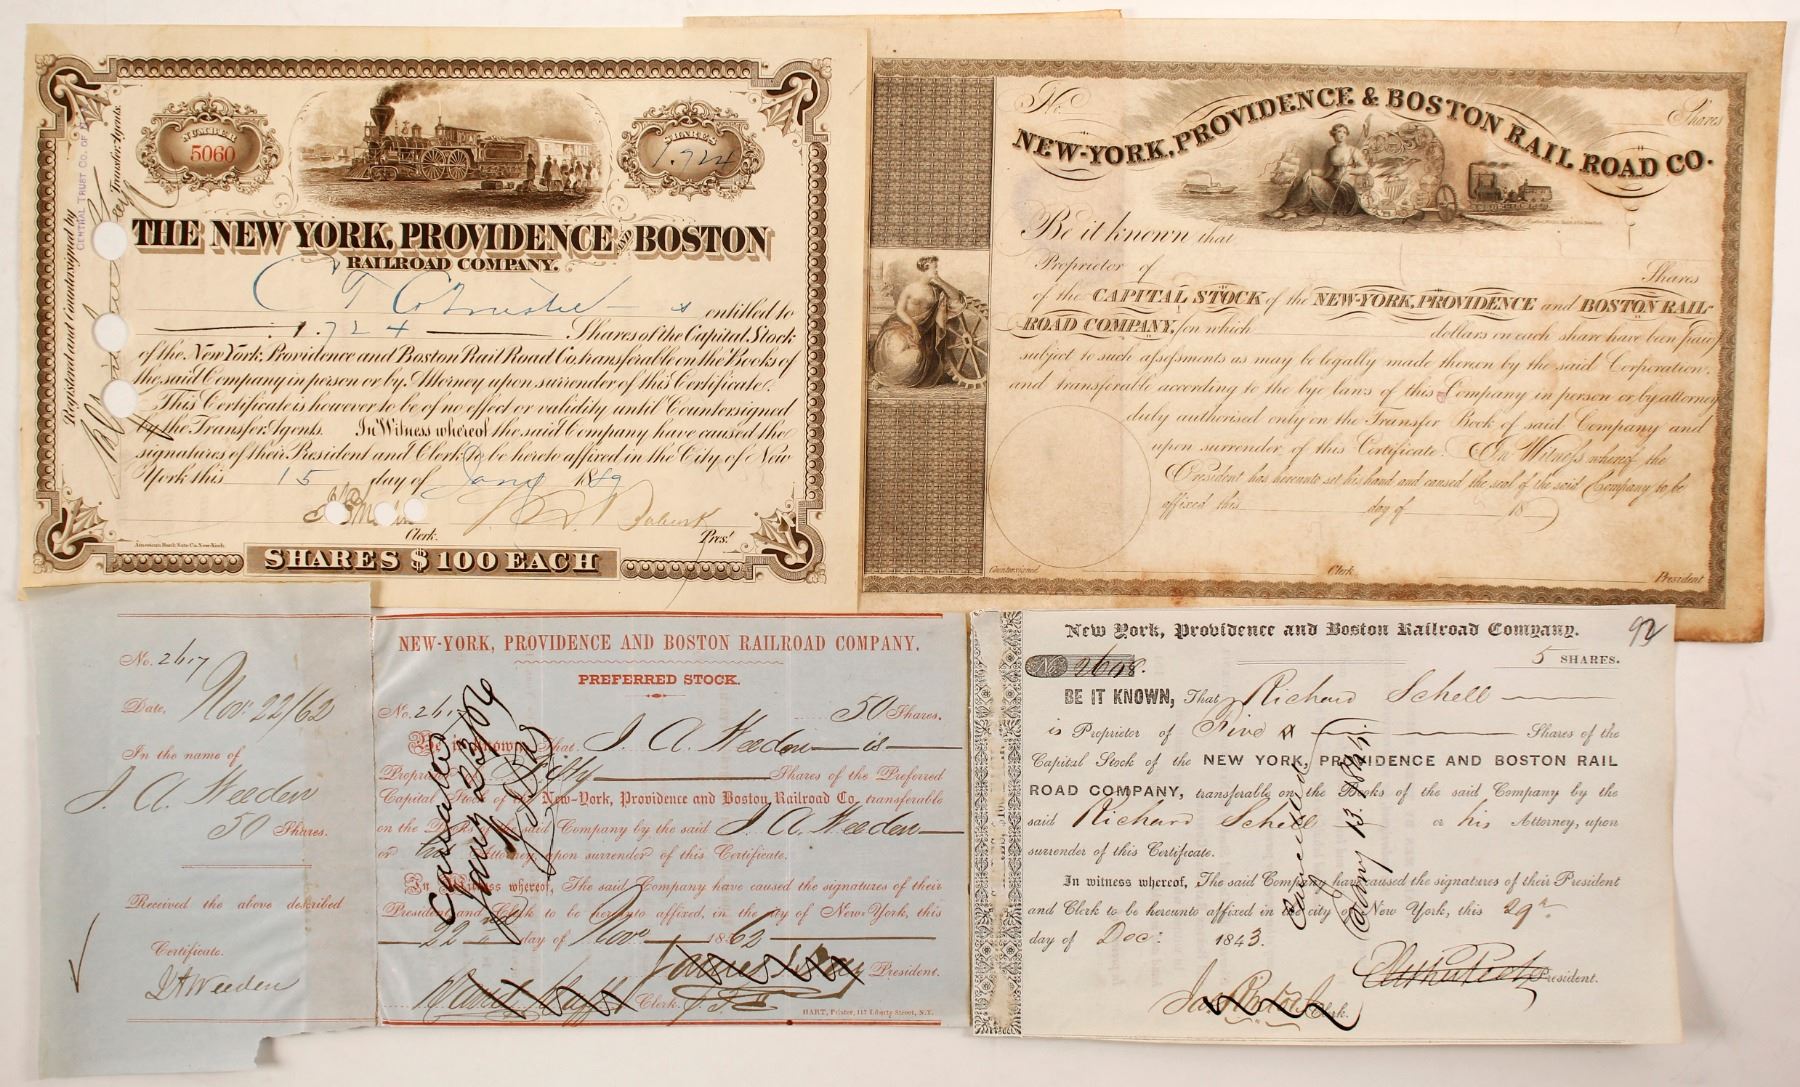 NUMBER
5060
SHARES
1.724
THE NEW YORK, PROVIDENCE AND BOSTON
RAILROAD COMPANY.
is entitled to
1.724 Shares of the Capital Stock
of the New York, Providence and Boston Rail Road Co. transferable on the Books of
the said Company in person or by Attorney upon surrender of this Certificate.
This Certificate is however to be of no effect or validity until Countersigned
by the Transfer Agents. In Witness whereof the said Company have caused the
signatures of their President and Clerk to be hereto affixed in the City of New
York this 15 day of Jany 1889
Clerk. Pres.t
American Bank Note Co. New York.
SHARES $100 EACH
Registered and Countersigned by
CENTRAL TRUST CO. OF
Transfer Agents.
No. Shares
NEW-YORK, PROVIDENCE & BOSTON RAIL ROAD CO.
Be it known that
Proprietor of Shares
of the CAPITAL STOCK of the NEW-YORK, PROVIDENCE and BOSTON RAIL-
ROAD COMPANY, for which dollars on each share have been paid
subject to such assessments as may be legally made thereon by the said Corporation,
and transferable according to the bye laws of this Company in person or by attorney
duly authorised only on the Transfer Book of said Company and
upon surrender of this Certificate. In Witness whereof the
President has hereunto set his hand and caused the seal of the said Company to be
affixed this day of 18
Countersigned Clerk President
No. 2617
Date, Nov. 22/62
In the name of
J. A. Weeden
50 Shares.
Received the above described
Certificate.
J A Weeden
NEW-YORK, PROVIDENCE AND BOSTON RAILROAD COMPANY.
PREFERRED STOCK.
No. 2617 50 Shares.
Be it known, That J. A. Weeden is
Proprietor of Fifty Shares of the Preferred
Capital Stock of the New-York, Providence and Boston Railroad Co. transferable
on the Books of the said Company by the said J. A. Weeden
or his Attorney, upon surrender of this Certificate.
In Witness whereof, The said Company have caused the signatures of their
President and Clerk to be hereunto affixed, in the city of New-York, this
22nd day of Nov. 1862
President.
Clerk.
HART, Printer, 117 Liberty Street, N.Y.
Cancelled
New York, Providence and Boston Railroad Company.
92
No. 2608.
5 SHARES.
BE IT KNOWN, That Richard Schell
is Proprietor of Five Shares of the
Capital Stock of the NEW YORK, PROVIDENCE AND BOSTON RAIL
ROAD COMPANY, transferable on the Books of the said Company by the
said Richard Schell or his Attorney, upon
surrender of this Certificate.
In witness whereof, The said Company have caused the signatures of their President
and Clerk to be hereunto affixed in the city of New York, this 29th
day of Dec: 1843.
President.
Clerk.
Cancelled